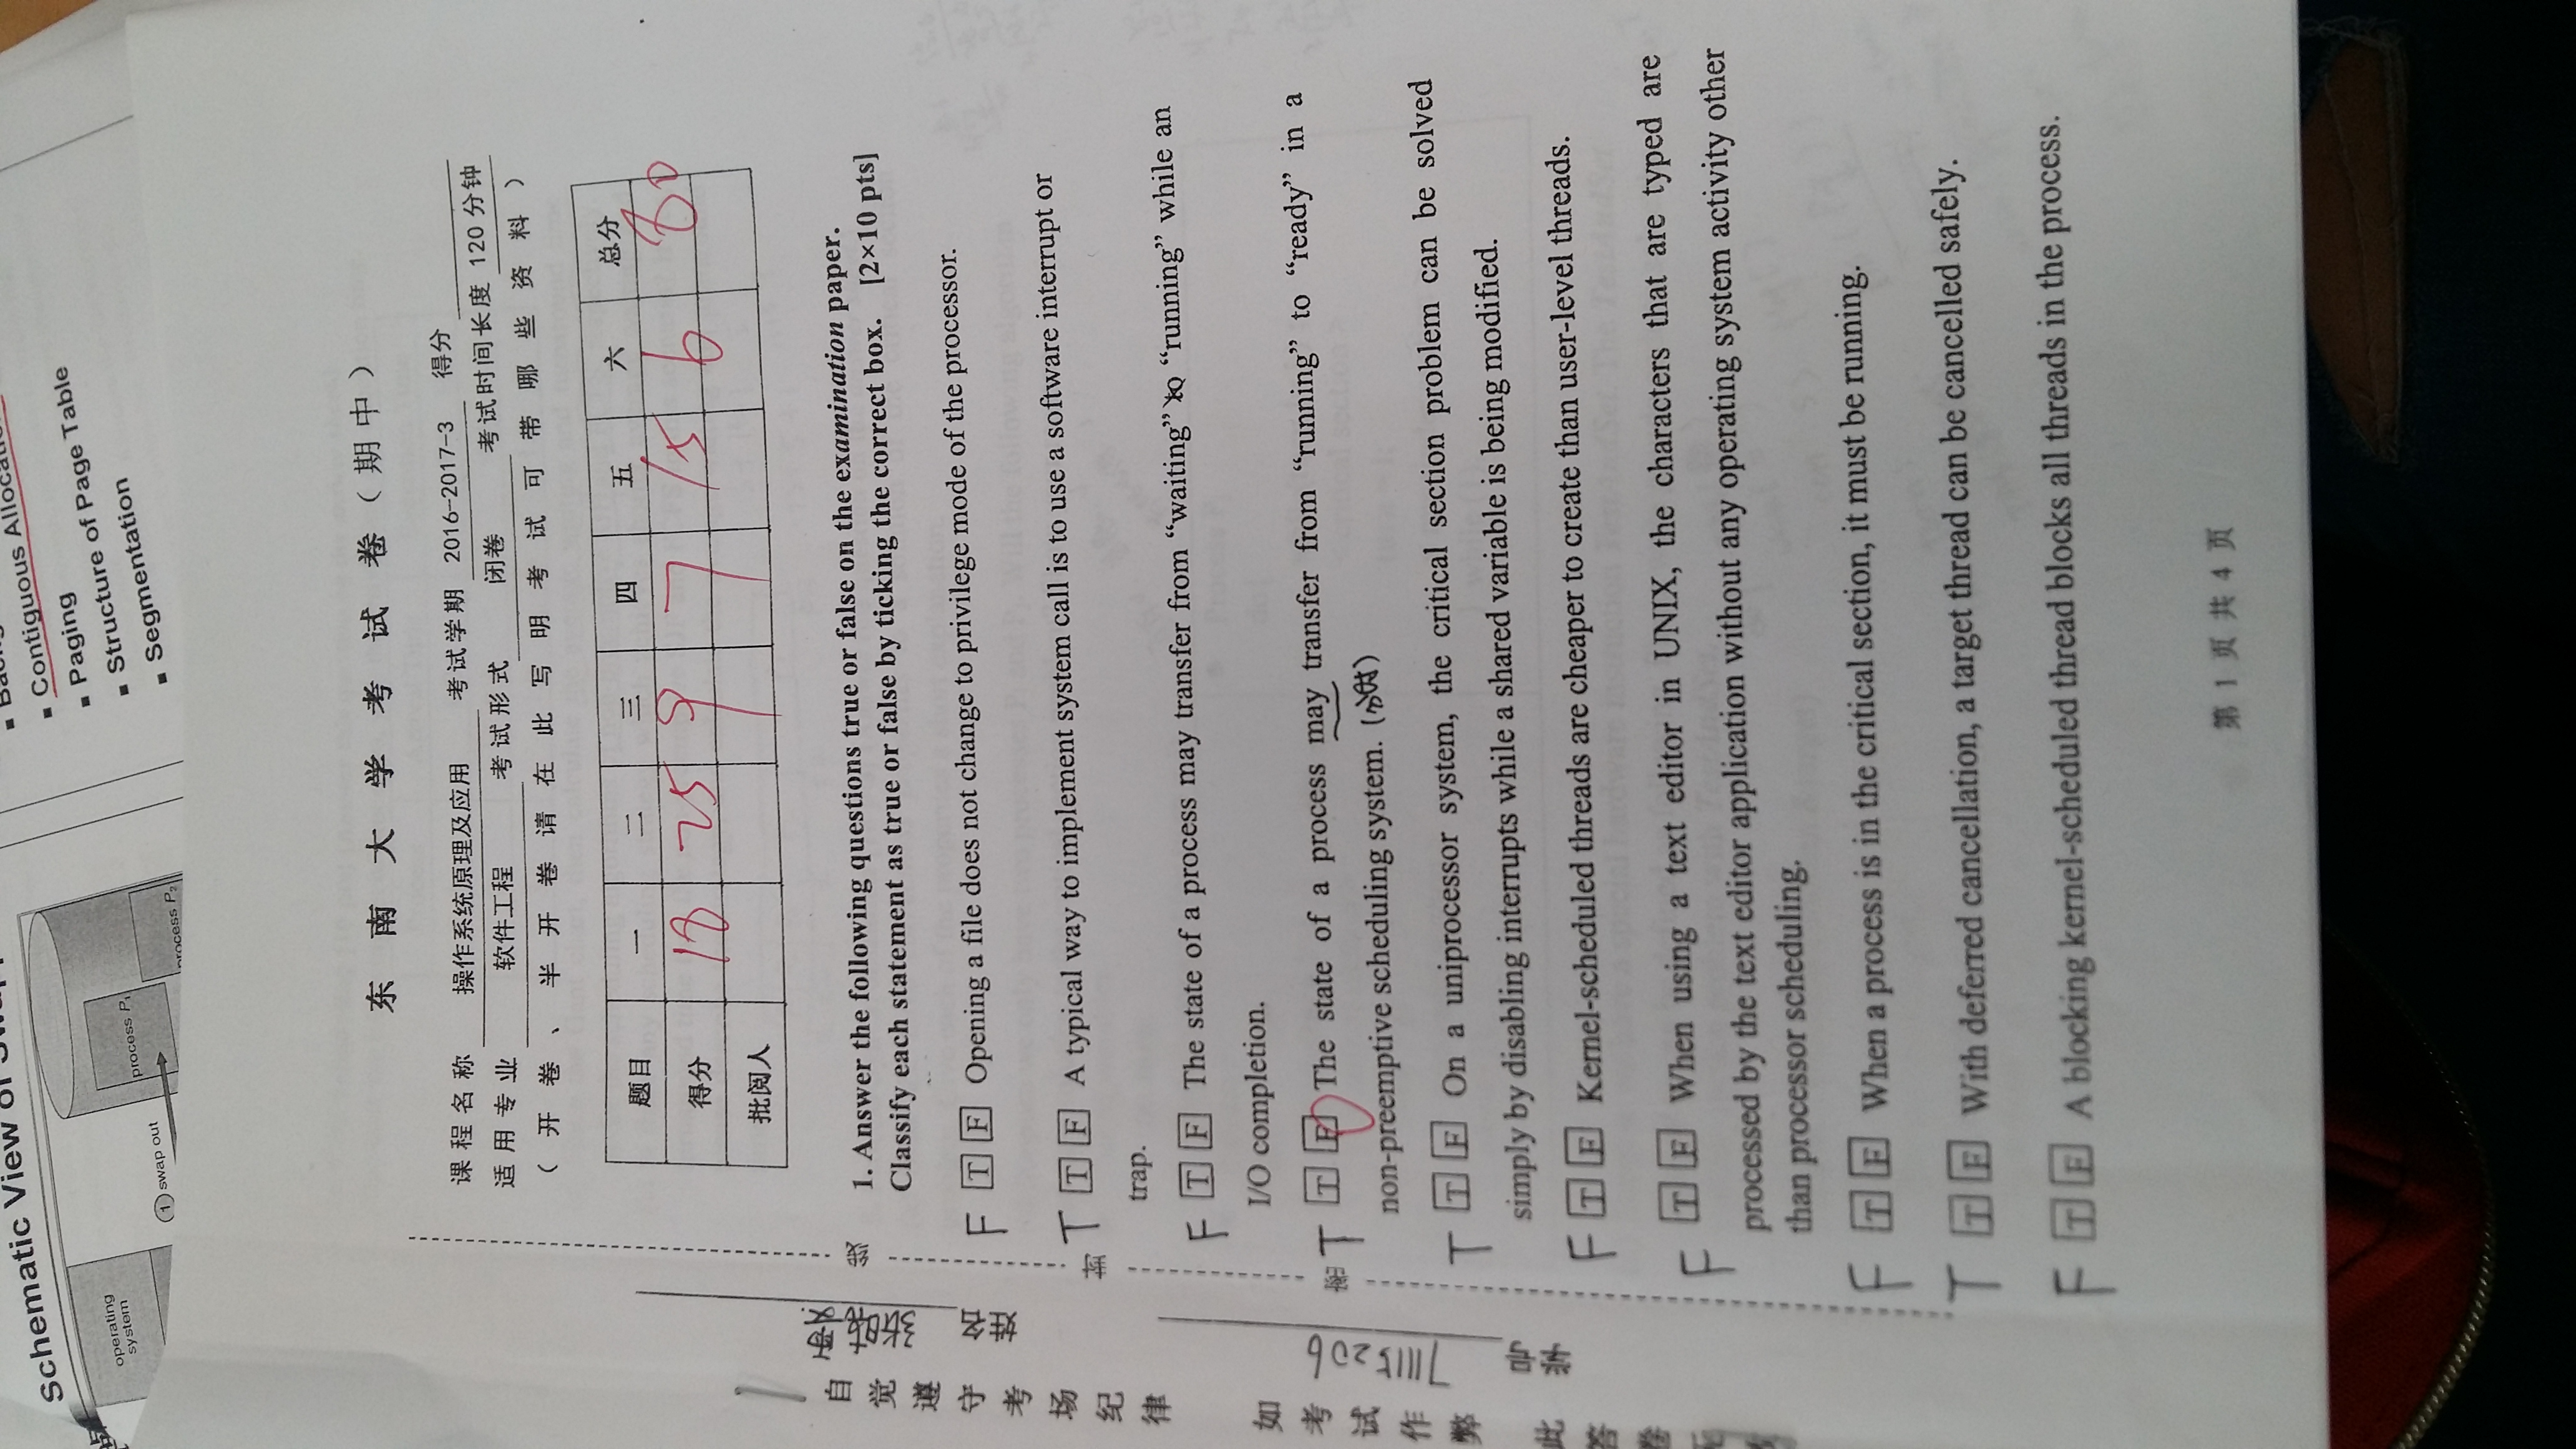 Schematic View of Swapp
operating
system
1 swap out
process P1
process P2
Contiguous Allocation
Paging
Structure of Page Table
Segmentation
东南大学考试卷（期中）
课程名称 操作系统原理及应用 考试学期 2016-2017-3 得分
适用专业 软件工程 考试形式 闭卷 考试时间长度 120 分钟
（开卷、半开卷请在此写明考试可带哪些资料）
题目 一 二 三 四 五 六 总分
得分 18 25 9 7 15 6 80
批阅人
自觉遵守考场纪律 如考试作弊 此答卷无
姓名
学号
密 封 线
1. Answer the following questions true or false on the examination paper.
Classify each statement as true or false by ticking the correct box. [2×10 pts]
F T F Opening a file does not change to privilege mode of the processor.
T T F A typical way to implement system call is to use a software interrupt or
trap.
F T F The state of a process may transfer from “waiting” to “running” while an
I/O completion.
T T F The state of a process may transfer from “running” to “ready” in a
non-preemptive scheduling system. (分时)
T T F On a uniprocessor system, the critical section problem can be solved
simply by disabling interrupts while a shared variable is being modified.
F T F Kernel-scheduled threads are cheaper to create than user-level threads.
F T F When using a text editor in UNIX, the characters that are typed are
processed by the text editor application without any operating system activity other
than processor scheduling.
F T F When a process is in the critical section, it must be running.
T T F With deferred cancellation, a target thread can be cancelled safely.
F T F A blocking kernel-scheduled thread blocks all threads in the process.
第 1 页 共 4 页